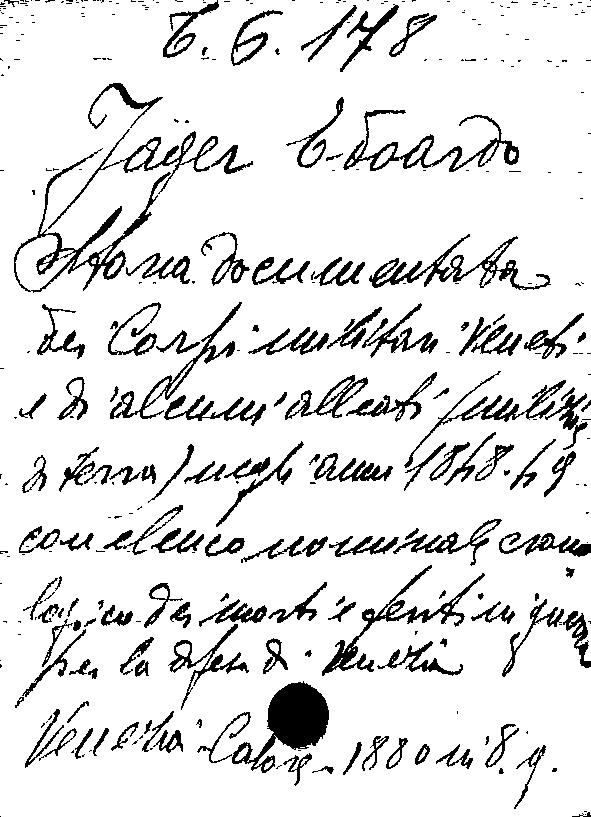 T. G. 178
Jäger Edoardo
Storia documentata
dei Corpi militari Veneti
e di alcuni alleati (milizie
di terra) negli anni 1848-49
con elenco nominale crono
logico dei morti e feriti in guerra
per la difesa di Venezia
Venezia 1880 in 8. g.